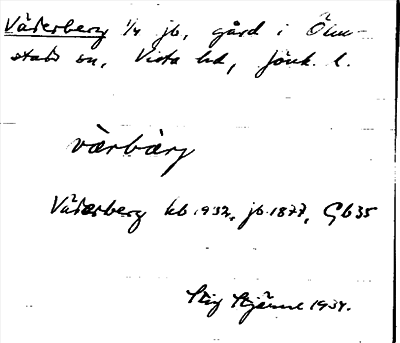 Väderberg 1/4 jb, gård i Ölm-
stads sn, Vista hd, Jönk. l.
värbärj
Väderberg kb 1932, jb 1877, Gb 35
Stig Stjärne 1934.